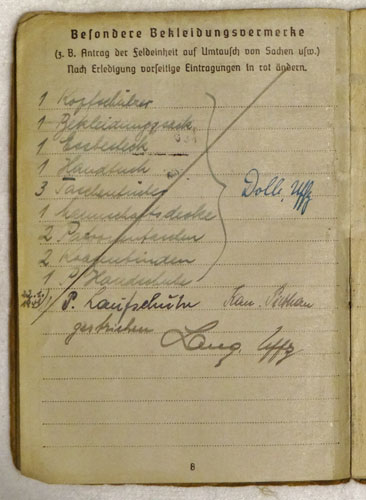 Besondere Bekleidungsvermerke
(z. B. Antrag der Feldeinheit auf Umtausch von Sachen usw.)
Nach Erledigung vorseitige Eintragungen in rot ändern.
1 Kopfschützer
1 Bekleidungssack
1 Essbesteck
1 Handtuch
3 Taschentücher
Dolle, Uffz
1
2 Patronentaschen
2
1 Handschuhe
1 P. Laufschuhe
gestrichen
Lang. Uffz
8